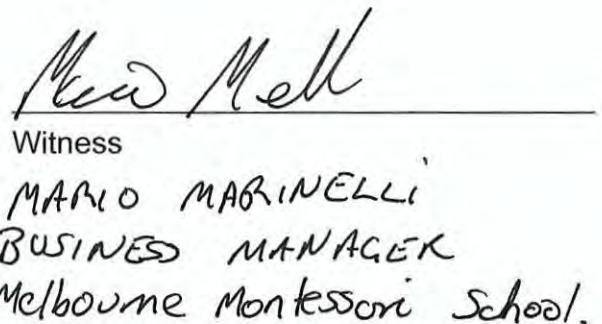 Witness
MARIO MARINELLI
BUSINESS MANAGER
Melbourne Montessori School.